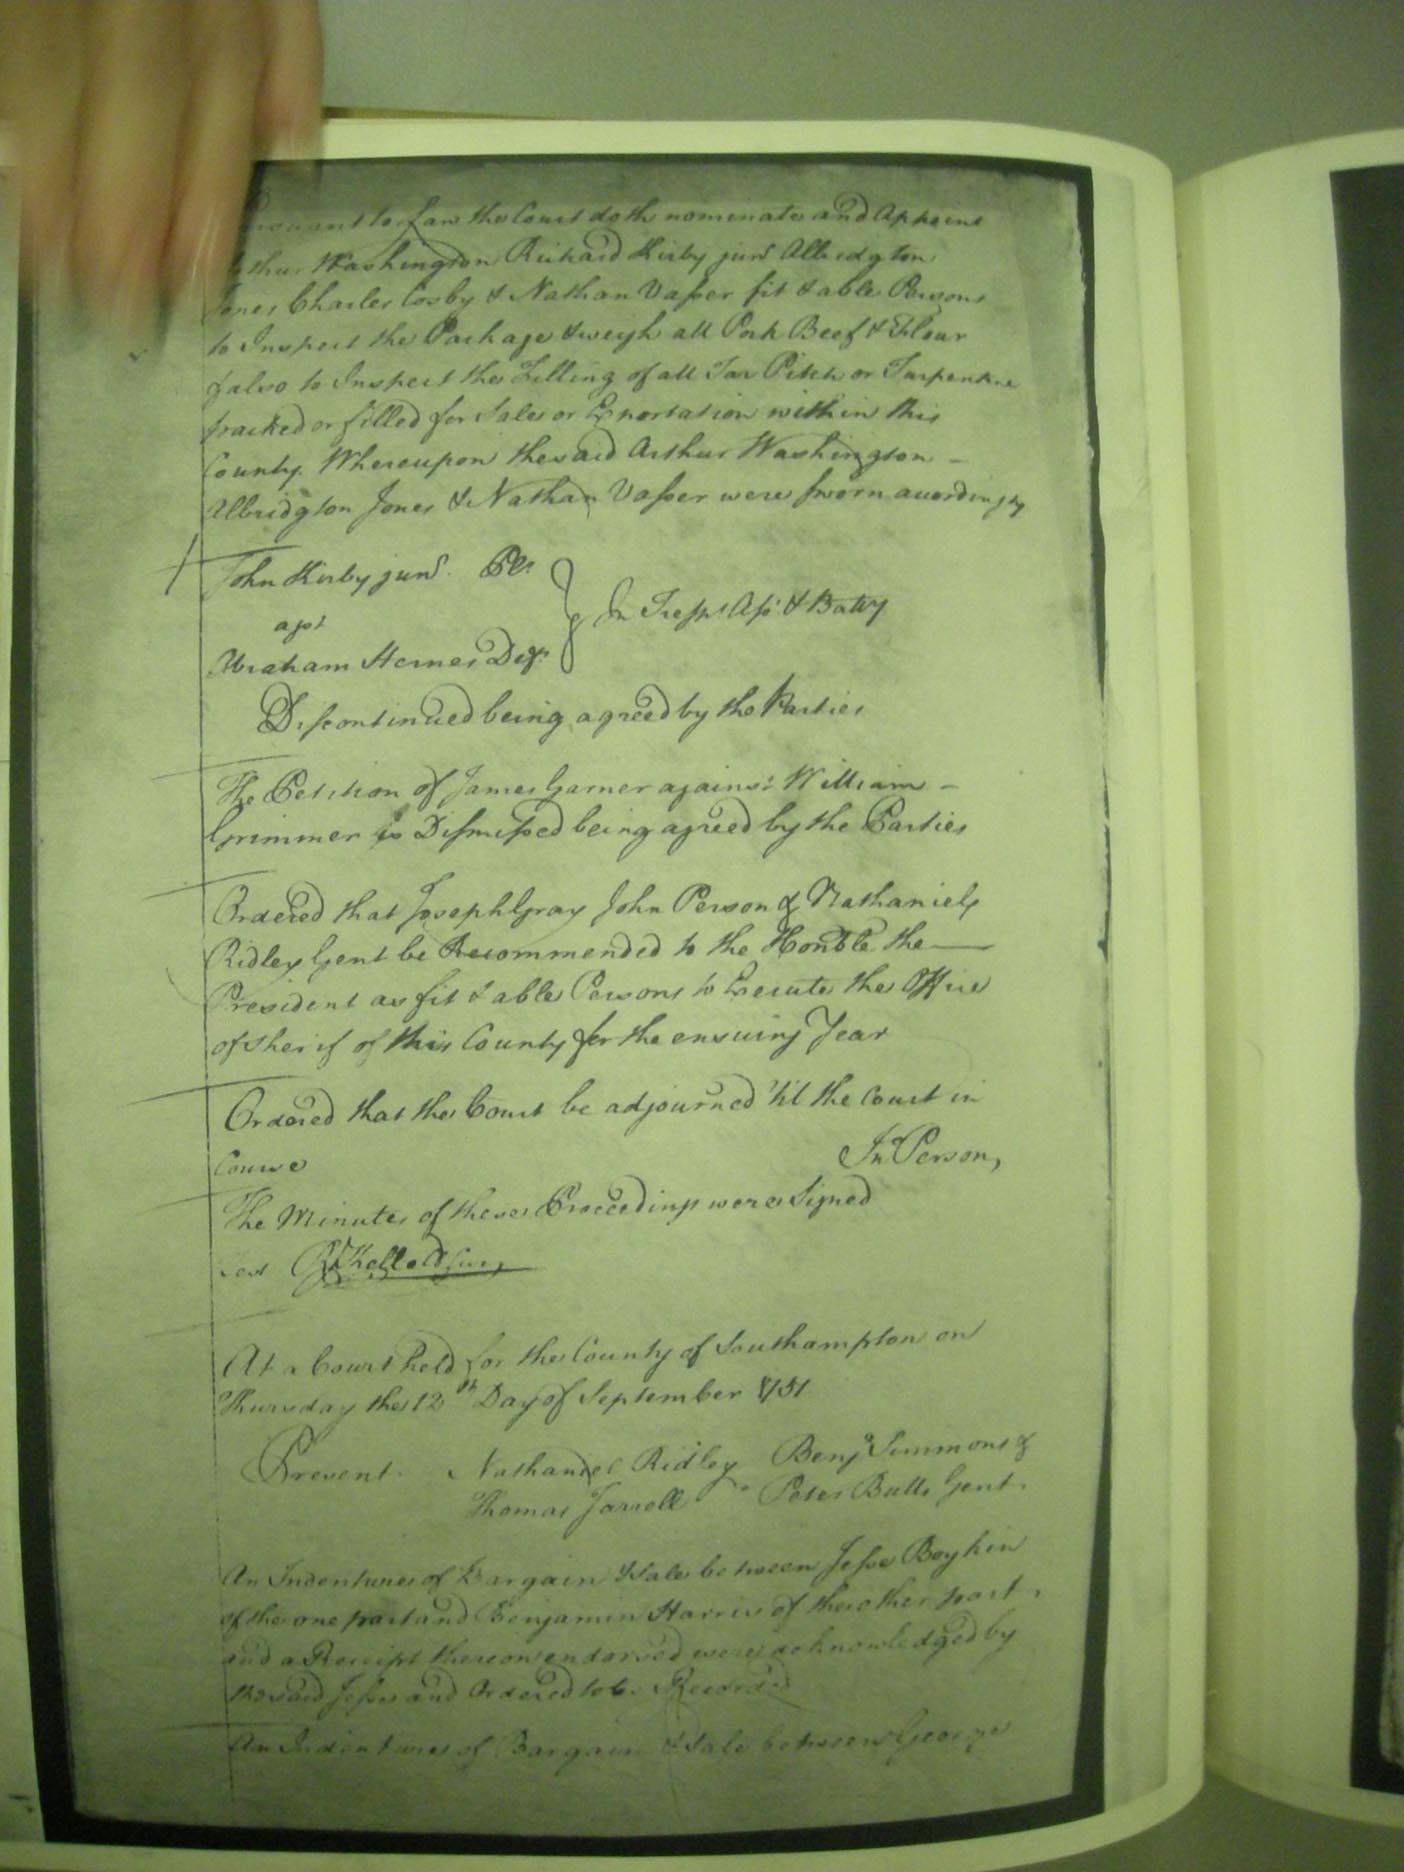 to Law the Court doth nominate and Appoint
Washington Richard Kirby junr Albridgton
Jones Charles Cosby & Nathan Vasser fit & able Persons
to Inspect the Package & weigh all Pork Beef & Flour
& also to Inspect the Filling of all Tar Pitch or Turpentine
packed or filled for Sale or Exportation within this
County. Whereupon the said Arthur Washington -
Albridgton Jones & Nathan Vasser were sworn accordingly
John Kirby junr. Plt
agst
In Tresps Asst & Batry
Abraham Harnes Deft
Discontinued being agreed by the Parties
The Petition of James Garner against William -
Grimmer is Dismissed being agreed by the Parties
Ordered that Joseph Gray John Person & Nathaniel
Ridley Gent be Recommended to the Honble the
President as fit & able Persons to Execute the Office
of Sherif of this County for the ensuing Year
Ordered that the Court be adjourned 'til the Court in
Course
Jno Person,
The Minutes of these Proceedings were Signed
Test R Kello Cl Cur,
At a Court held for the County of Southampton on
Thursday the 12th Day of September 1751
Present. Nathaniel Ridley Benja Simmons &
Thomas Jarrell Peter Butts Gent.
An Indenture of Bargain & Sale between Jesse Boykin
of the one part and Benjamin Harris of the other part
and a Receipt thereon endorsed were acknowledged by
the said Jesse and Ordered to be Recorded
An Indenture of Bargain & Sale between George